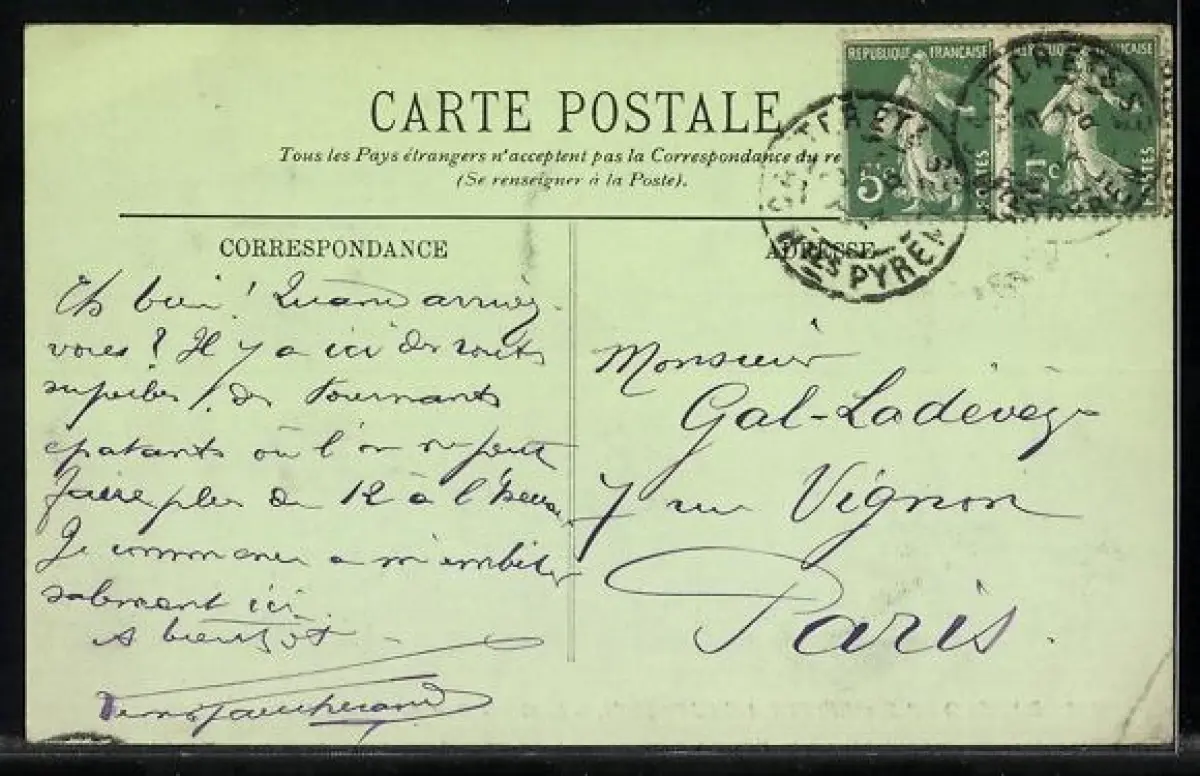 REPUBLIQUE FRANÇAISE
5c
POSTES
REPUBLIQUE FRANÇAISE
5c
POSTES
CAUTERETS
HTES PYRENEES
CAUTERETS
CARTE POSTALE
Tous les Pays étrangers n'acceptent pas la Correspondance du re
(Se renseigner à la Poste).
CORRESPONDANCE
ADRESSE
Eh bien! Quand arrivez
vous? Il y a ici des routes
superbes, des tournants
épatants où l'on ne peut
faire plus de 12 à l'heure
Je commence a m'embêter
salement ici
A bientot
Monsieur
Gal-Ladevèze
7 rue Vignon
Paris.